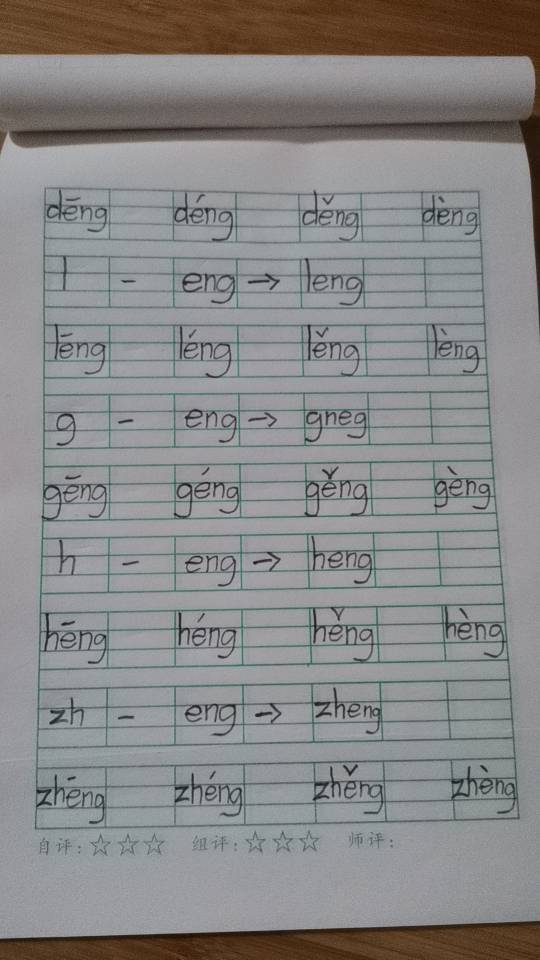 dēng déng děng dèng
l - eng → leng
lēng léng lěng lèng
g - eng → gneg
gēng géng gěng gèng
h - eng → heng
hēng héng hěng hèng
zh - eng → zheng
zhēng zhéng zhěng zhèng
自评：☆☆☆ 组评：☆☆☆ 师评：